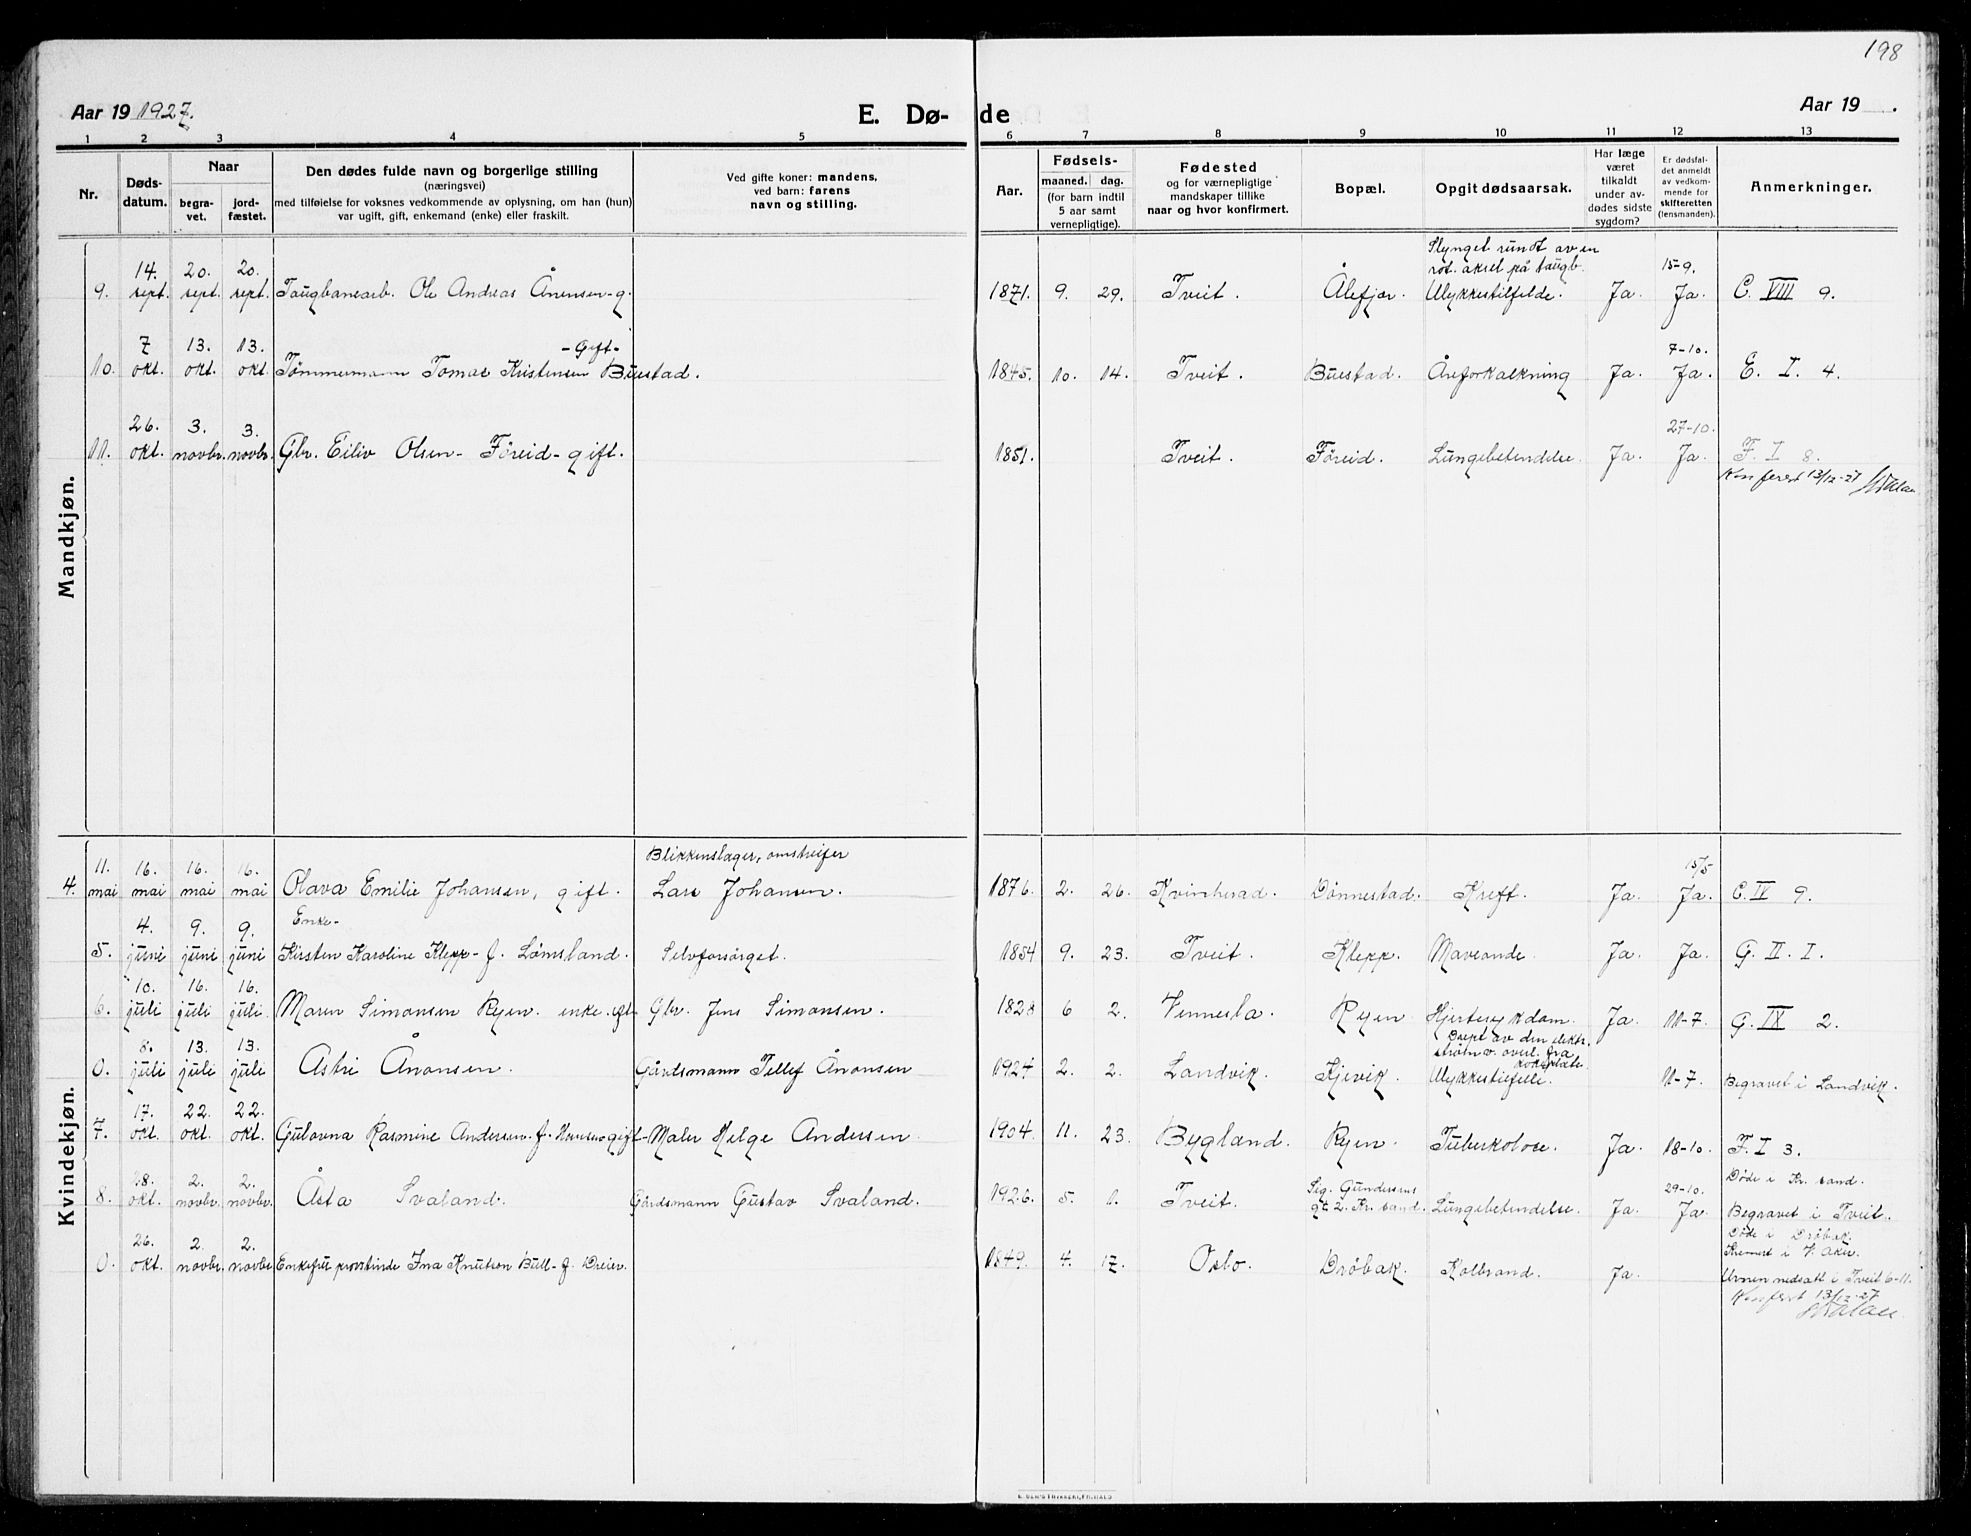 198
Aar 19 1927.
E. Dø-de
Aar 19 .
1 2 3 4 5 6 7 8 9 10 11 12 13
Nr.
Døds-
datum.
Naar
begra-
vet.
jord-
fæstet.
Den dødes fulde navn og borgerlige stilling
(næringsvei)
med tilføielse for voksnes vedkommende av oplysning, om han (hun)
var ugift, gift, enkemand (enke) eller fraskilt.
Ved gifte koner: mandens,
ved barn: farens
navn og stilling.
Aar.
Fødsels-
maaned. dag.
(for barn indtil
5 aar samt
vernepligtige).
Fødested
og for værnepligtige
mandskaper tillike
naar og hvor konfirmert.
Bopæl.
Opgit dødsaarsak.
Har læge
været
tilkaldt
under av-
dødes sidste
sygdom?
Er dødsfal-
det anmeldt
av vedkom-
mende for
skifteretten
(lensmanden).
Anmerkninger.
Mandkjøn.
14. 20. 20. Slynget rundt av en
rot. aksel på taugb. 15-9.
9. sept. sept. sept. Taugbanearb. Ole Andreas Ånensen-g. 1871. 9. 29. Tveit. Ålefjær. Ulykkestilfelde. Ja. Ja. C. VIII 9.
7 13. 13. -Gift- 7-10.
10. okt. okt. okt. Tömmermann Tomas Kristensen Buestad. 1845. 10. 14. Tveit. Buestad. Åreforkalkning Ja. Ja. E. I. 4.
26. 3. 3. 27-10.
11. okt. novbr. novbr. Gbr. Eiliv Olsen- Föreid-gift. 1851. Tveit. Föreid. Lungebetendelse. Ja. Ja. F. I 8.
Konferert 13/12-27
Kvindekjøn.
11. 16. 16. 16. Blikkenslager, omstreifer 15/5
4. mai mai mai mai Olava Emilie Johansen, gift. Lars Johansen. 1876. 2. 26. Kvinherad. Dönnestad. Kreft. Ja. Ja. C. IX 9.
4. 9. 9. Enke-
5. juni juni juni Kirsten Karoline Klepp- f. Lömsland. Selvforsörget. 1854 9. 23. Tveit. Klepp. Maveonde. Ja. Ja. G. II. I.
10. 16. 16.
6. juli juli juli Maren Simonsen Ryen. enke. Gbr. Jens Simonsen. 1828 6 2. Vennesla. Ryen Hjertesykdom. Ja 11-7. G. IX 2.
8. 13. 13. Drept av den elektr.
ström v. overl. fra
kokeplate
0. juli juli juli Astri Ånonsen. Gårdsmann Tellef Ånonsen 1924 2. 2. Landvik. Kjevik. Ulykkestilfelle. 11-7. Begravet i Landvik.
17. 22. 22.
7. okt. okt. okt. Gulovna Rasmine Andersen. f. Hansen gift- Maler Helge Andersen. 1904. 11. 23. Bygland. Ryen. Tuberkolose. Ja 18-10. F. I 3.
28. 2. 2. Sig. Gundersens 29-10. Döde i Kr. sand.
8. okt. novbr. novbr. Åsta Svaland. Gårdsmann Gustav Svaland. 1926. 5. 1. Tveit. gt. 2. Kr. sand. Lungebetendelse. Ja. Ja. Begravet i Tveit.
26. 2. 2. Döde i Dröbak.
Kremert i V. Aker.
0. okt. novbr. novbr Enkefru provstinde Ina Knutson Bull- f. Dreier. 1849. 4. 17. Oslo. Dröbak. Kolbrand. Ja. Urnen nedsatt i Tveit 6-11.
Konferert 13/12-27